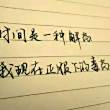 时间是一种解药
我现在正服下的毒药